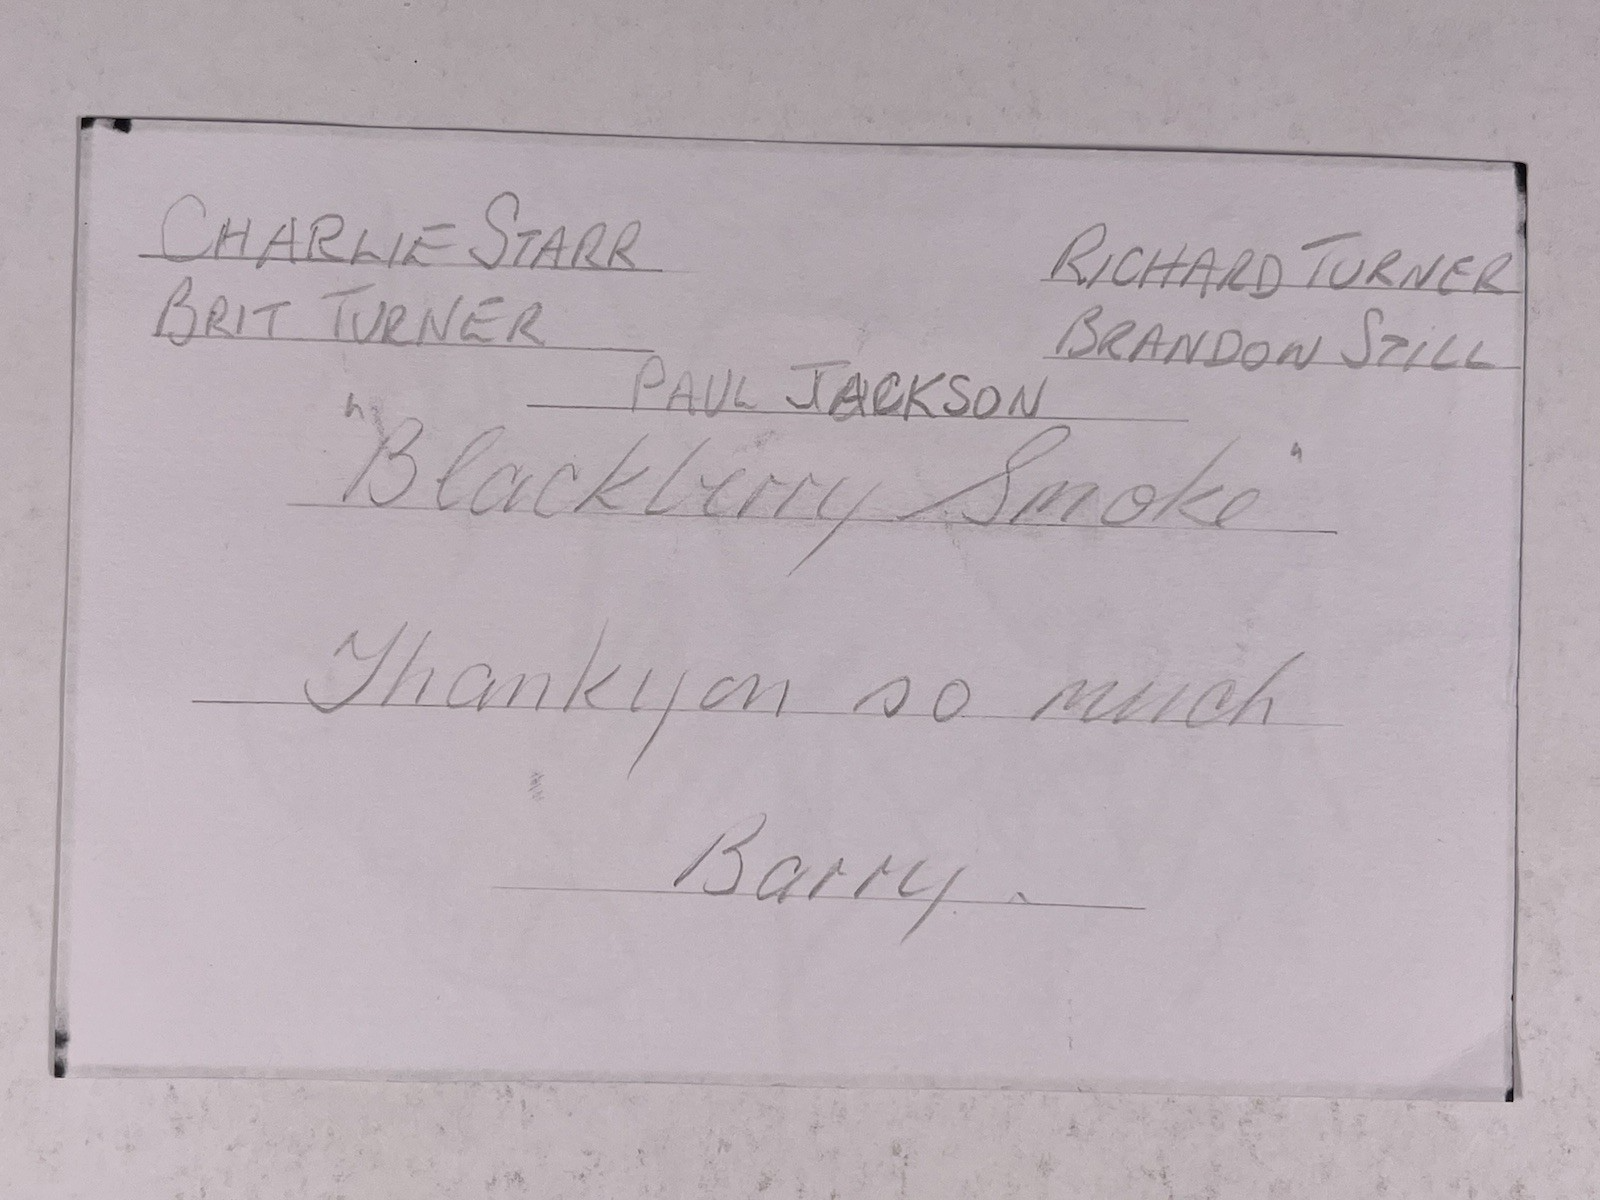 CHARLIE STARR RICHARD TURNER
BRIT TURNER BRANDON STILL
PAUL JACKSON
"Blackberry Smoke"
Thankyou so much
Barry.